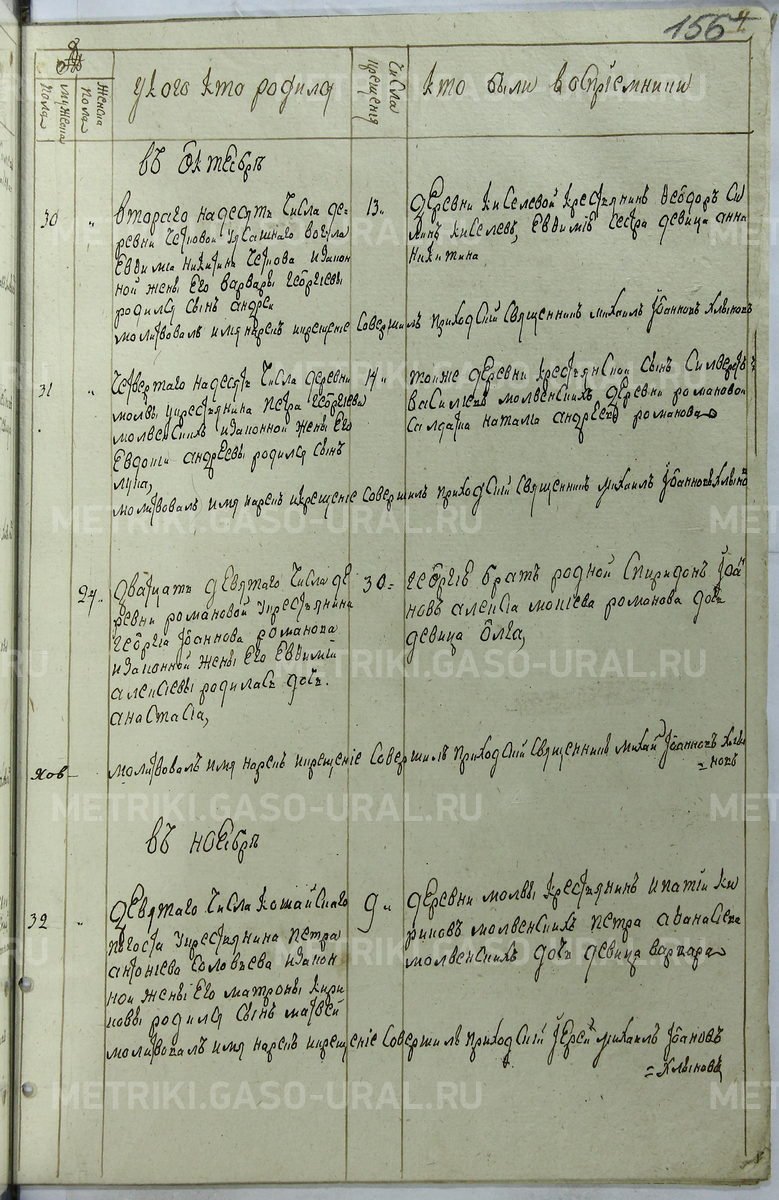 156
мужеска пола
женска пола
у кого кто родился
числа крещения
кто были восприемники
въ октебрѣ
30 " втораго надесять числа де- 13 "
ревни Черновой ясашнаго вогула
Евдима Никитина Чернова и закон
ной жены его Варвары Георгиевы
родился сынъ Андрей
деревни Киселевой крестьянинъ Ѳеодоръ
Киселевъ, Евдиміѣ сестра девица Анна
Никитина
молитвовалъ имя нарекъ и крещение совершилъ приходскій священникъ Михаилъ Іоанновъ Хлыновъ
31 " четвертаго надесять числа деревни 14 "
Молвы у крестьянина Петра Георгіева
Молвенскихъ и законной жены его
Евдокіи Андреевы родился сынъ
Лука,
тоиже деревни крестьянской сынъ Силверстъ
Василіевъ Молвенскихъ деревни Романовой
салдатка Наталіа Андреева Романова
молитвовалъ имя нарекъ и крещеніе совершилъ приходскій священникъ Михаилъ Іоанновъ Хлыновъ
двадцать девятаго числа де 30 =
ревни Романовой у крестьянина
Георгіа Іоаннова Романова
и законной жены его Евдиміи
Алексіевы родилась дочь
Анастасіа,
Георгіѣ братъ родной Спиридонъ Іоан
новъ Алексіа Моисіева Романова дочь
девица Олга,
молитвовалъ имя нарекъ и крещеніе совершилъ приходскій священникъ Михаилъ Іоанновъ Хлы
= новъ
въ ноебрѣ
32 " девятаго числа Кошайскаго 9 "
погоста у крестьянина Петра
Антоніева Соловьева и закон
ной жены его Матроны Кири
ловы родился сынъ Матвей
деревни Молвы крестьянинъ Ипатій Ки
риловъ Молвенскихъ Петра Аѳанасіева
Молвенскихъ дочь девица Варвара
молитвовалъ имя нарекъ и крещеніе совершилъ приходскій іерей Михаилъ Іоанновъ
= Хлыновъ
METRIKI.GASO-URAL.RU